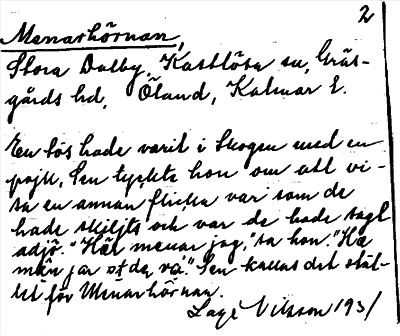 2
Menarhörnan,
Stora Dalby, Kastlösa sn, Gräs-
gårds hd, Öland, Kalmar l.
En tös hade varit i Skogen med en
pojk. Sen tyckte hon om att vi-
sa en annan flicka var som de
hade skiljts och var de hade tagt
adjö. "Här menar jag," sa hon. "Hä
män jär de va." Sen kallas det stäl-
let för Menarhörnan.
Lage Nilsson 1931